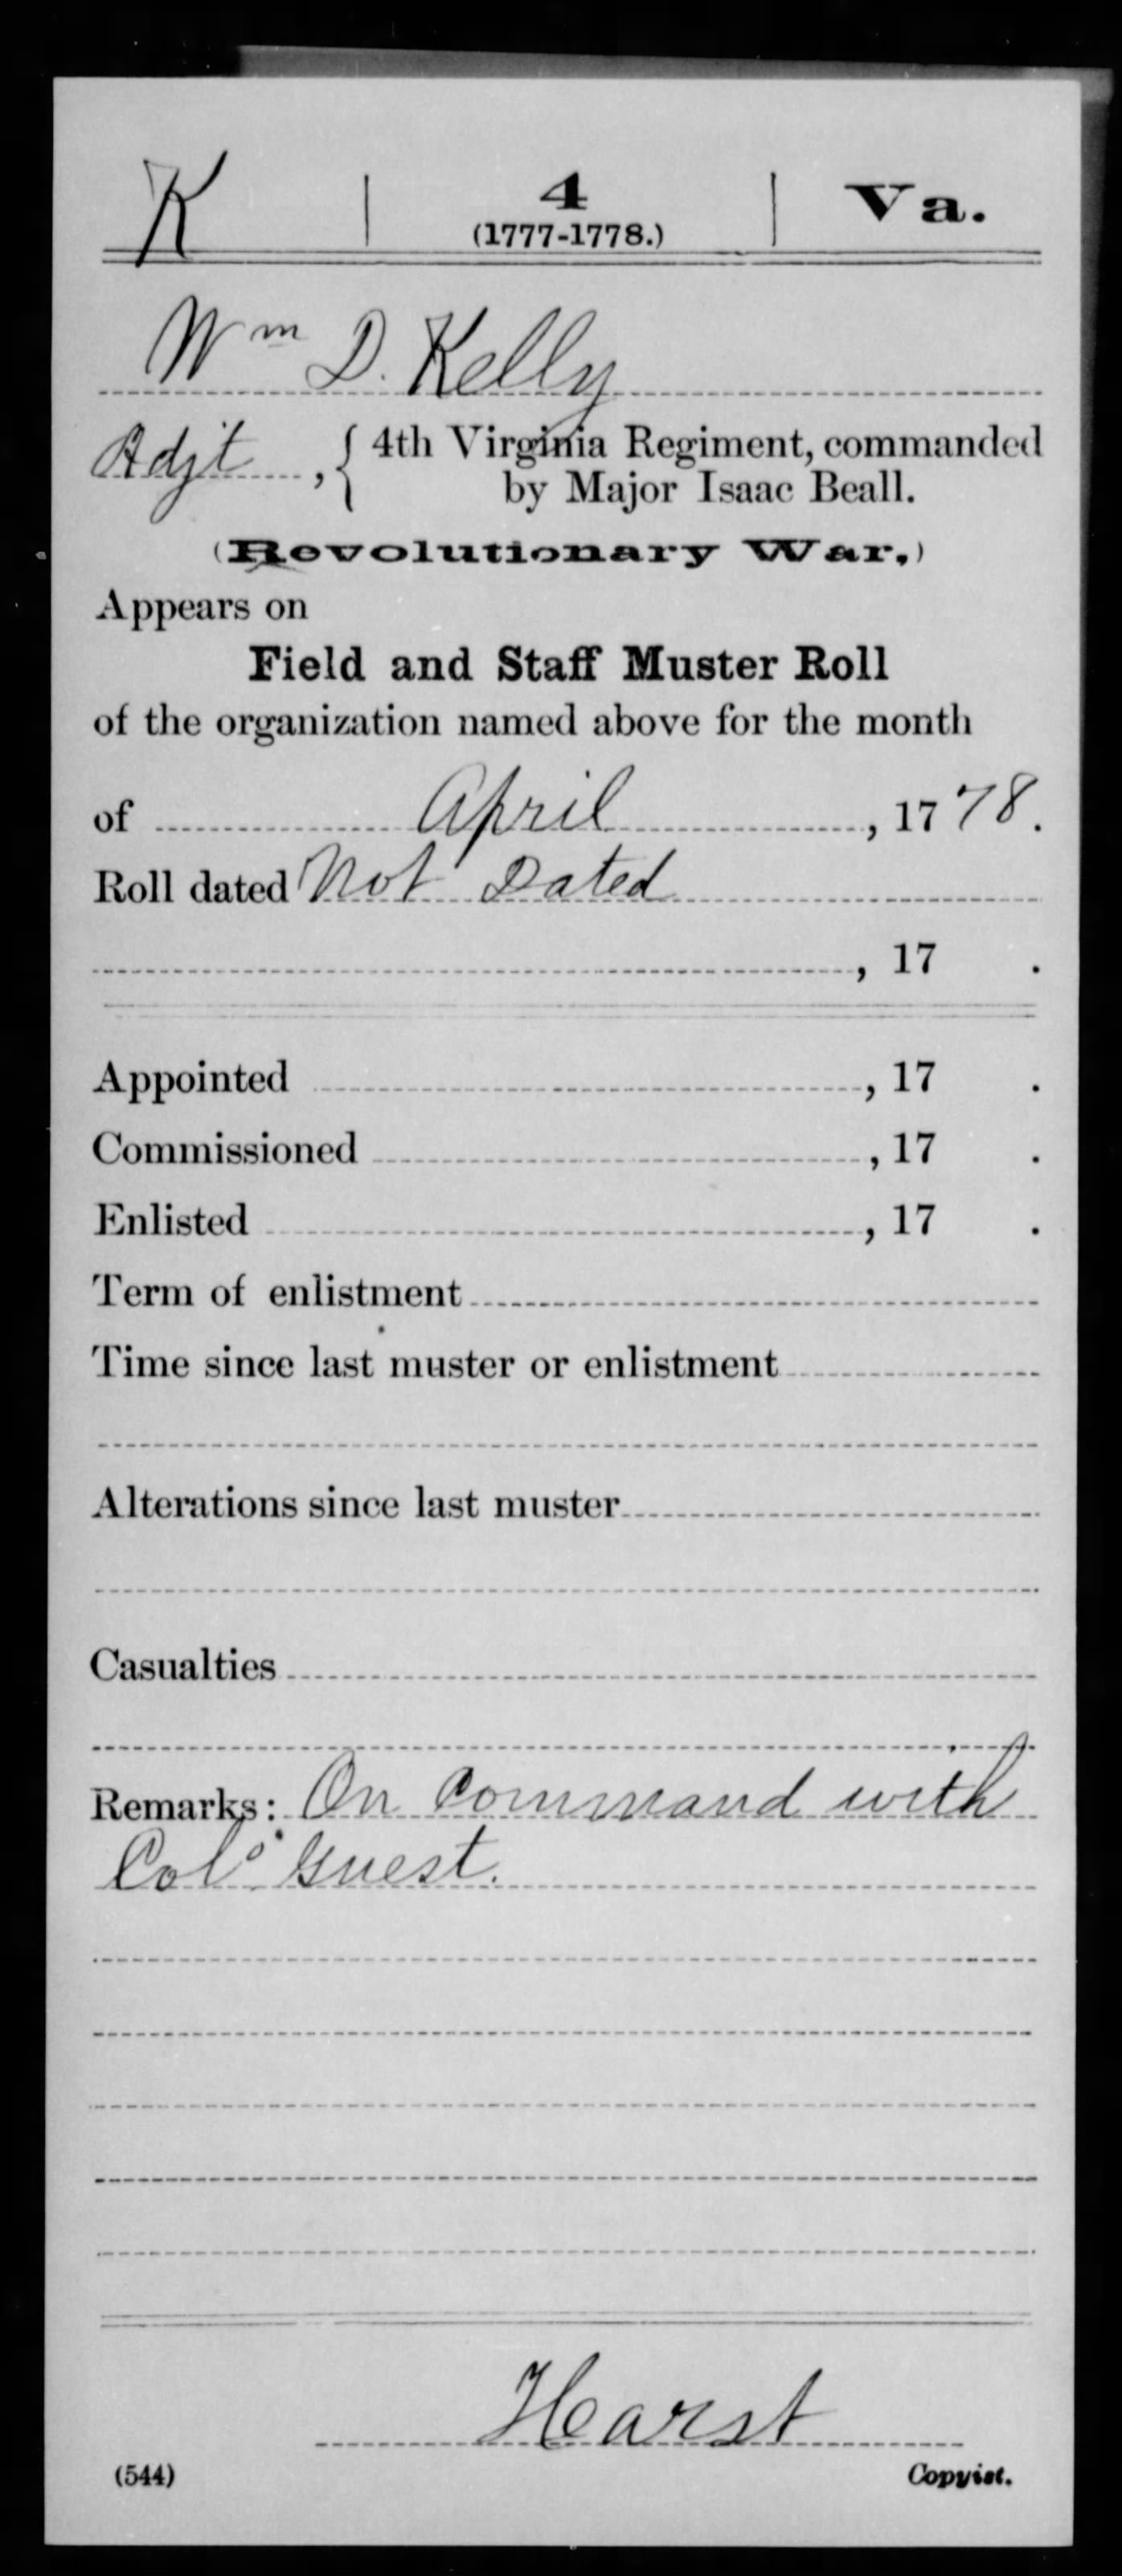 K | 4 | Va.
(1777-1778.)
Wm D. Kelly
Adjt, { 4th Virginia Regiment, commanded
by Major Isaac Beall.
(Revolutionary War.)
Appears on
Field and Staff Muster Roll
of the organization named above for the month
of April, 1778.
Roll dated Not Dated
, 17 .
Appointed , 17 .
Commissioned , 17 .
Enlisted , 17 .
Term of enlistment
Time since last muster or enlistment
Alterations since last muster
Casualties
Remarks: On Command with
Colo Guest.
Hearst
(544) Copyist.